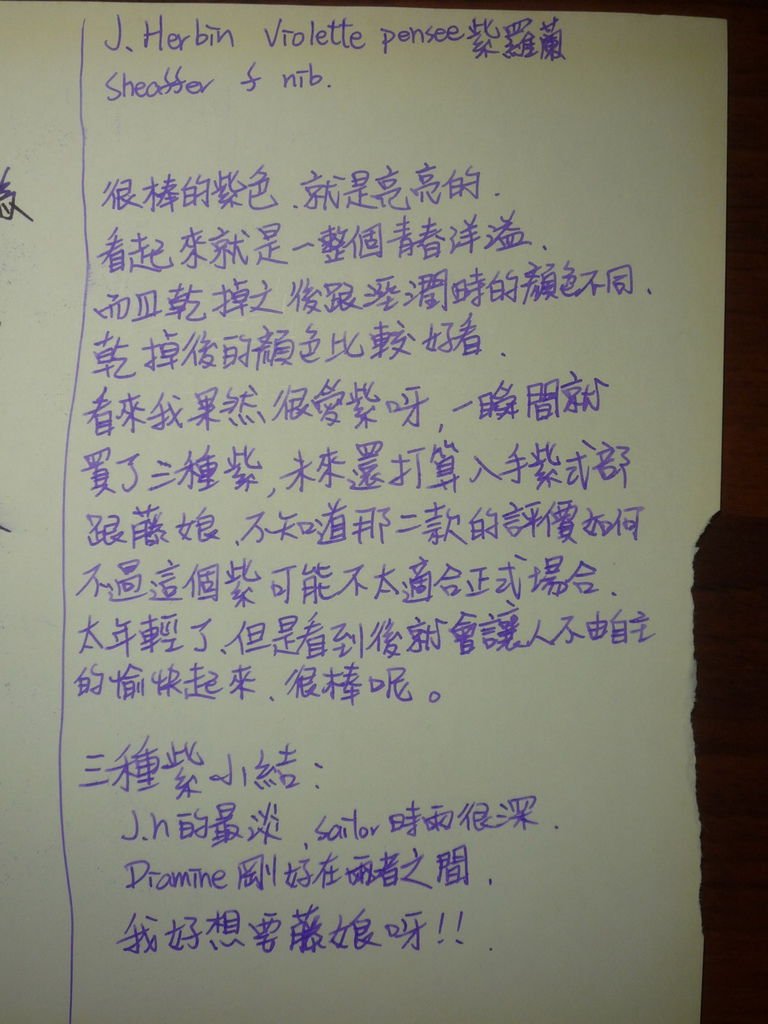 J. Herbin Violette pensee 紫羅蘭
Sheaffer f nib.
很棒的紫色、就是亮亮的.
看起來就是一整個青春洋溢.
而且乾掉之後跟溼潤時的顏色不同.
乾掉後的顏色比較好看.
看來我果然很愛紫呀,一瞬間就
買了三種紫,未來還打算入手紫式部
跟藤娘、不知道那二款的評價如何
不過這個紫可能不太適合正式場合.
太年輕了、但是看到後就會讓人不由自主
的愉快起來、很棒呢。
三種紫小結:
J.h的最淡、sailor時雨很深.
Diamine剛好在兩者之間.
我好想要藤娘呀!!.